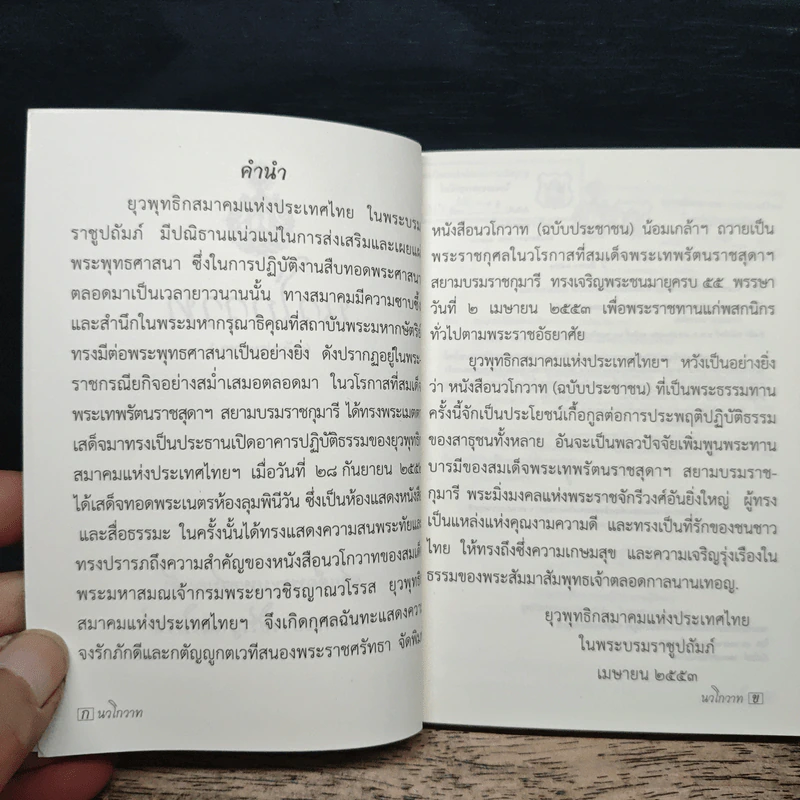 คำนำ
ยุวพุทธิกสมาคมแห่งประเทศไทย ในพระบรม
ราชูปถัมภ์ มีปณิธานแน่วแน่ในการส่งเสริมและเผยแผ่
พระพุทธศาสนา ซึ่งในการปฏิบัติงานสืบทอดพระศาสนา
ตลอดมาเป็นเวลายาวนานนั้น ทางสมาคมมีความซาบซึ้ง
และสำนึกในพระมหากรุณาธิคุณที่สถาบันพระมหากษัตริย์
ทรงมีต่อพระพุทธศาสนาเป็นอย่างยิ่ง ดังปรากฏอยู่ในพระ
ราชกรณียกิจอย่างสม่ำเสมอตลอดมา ในวโรกาสที่สมเด็จ
พระเทพรัตนราชสุดาฯ สยามบรมราชกุมารี ได้ทรงพระเมตตา
เสด็จมาทรงเป็นประธานเปิดอาคารปฏิบัติธรรมของยุวพุทธิก
สมาคมแห่งประเทศไทยฯ เมื่อวันที่ ๒๘ กันยายน
ได้เสด็จทอดพระเนตรห้องลุมพินีวัน ซึ่งเป็นห้องแสดงหนังสือ
และสื่อธรรมะ ในครั้งนั้นได้ทรงแสดงความสนพระทัยและ
ทรงปรารภถึงความสำคัญของหนังสือนวโกวาทของสมเด็จ
พระมหาสมณเจ้ากรมพระยาวชิรญาณวโรรส ยุวพุทธิก
สมาคมแห่งประเทศไทยฯ จึงเกิดกุศลฉันทะแสดงความ
จงรักภักดีและกตัญญูกตเวทีสนองพระราชศรัทธา จัดพิมพ์
ก นวโกวาท
หนังสือนวโกวาท (ฉบับประชาชน) น้อมเกล้าฯ ถวายเป็น
พระราชกุศลในวโรกาสที่สมเด็จพระเทพรัตนราชสุดาฯ
สยามบรมราชกุมารี ทรงเจริญพระชนมายุครบ ๕๕ พรรษา
วันที่ ๒ เมษายน ๒๕๕๓ เพื่อพระราชทานแก่พสกนิกร
ทั่วไปตามพระราชอัธยาศัย
ยุวพุทธิกสมาคมแห่งประเทศไทยฯ หวังเป็นอย่างยิ่ง
ว่า หนังสือนวโกวาท (ฉบับประชาชน) ที่เป็นพระธรรมทาน
ครั้งนี้จักเป็นประโยชน์เกื้อกูลต่อการประพฤติปฏิบัติธรรม
ของสาธุชนทั้งหลาย อันจะเป็นพลวปัจจัยเพิ่มพูนพระทาน
บารมีของสมเด็จพระเทพรัตนราชสุดาฯ สยามบรมราช-
กุมารี พระมิ่งมงคลแห่งพระราชจักรีวงศ์อันยิ่งใหญ่ ผู้ทรง
เป็นแหล่งแห่งคุณงามความดี และทรงเป็นที่รักของชนชาว
ไทย ให้ทรงถึงซึ่งความเกษมสุข และความเจริญรุ่งเรืองใน
ธรรมของพระสัมมาสัมพุทธเจ้าตลอดกาลนานเทอญ.
ยุวพุทธิกสมาคมแห่งประเทศไทย
ในพระบรมราชูปถัมภ์
เมษายน ๒๕๕๓
นวโกวาท ข